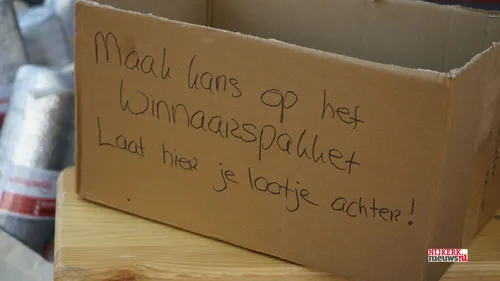 Maak kans op het
Winnaarspakket
Laat hier je lootje achter!
NIJKERK
nieuws.nl